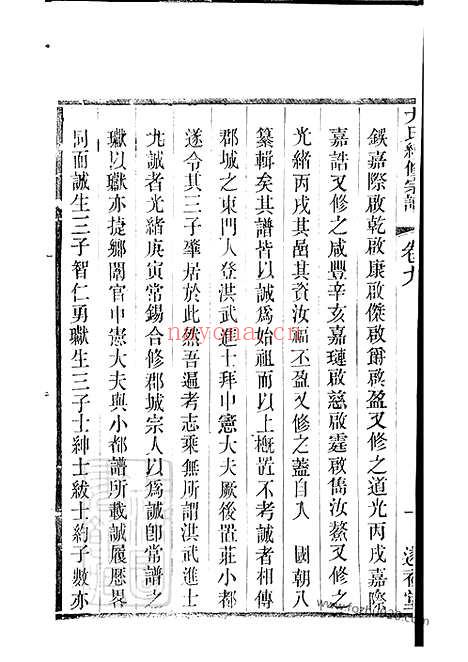 尤氏續修宗譜 卷九 一
鉽嘉際啟乾啟康啟傑啟爵啟盈又修之道光丙戌嘉際
嘉誥又修之咸豐辛亥嘉璉啟慈啟霆啟雋汝鰲又修之
光緒丙戌其邕其資汝楅丕盈又修之蓋自入 國朝八
纂輯矣其譜皆以誠爲始祖而以上槪置不考誠相傳
郡城之東門人登洪武進士拜中憲大夫厥後置莊小都
遂令其三子肇居於此然吾遍考志乘無所謂洪武進士
尤誠者光緒庚寅常錫合修郡城宗人以爲誠卽常譜之
瓛以瓛亦捷鄉闈官中憲大夫與小都譜所載誠履歷畧
同而誠生三子智仁勇瓛生三子士紳士紱士約子數亦
nayona.cn